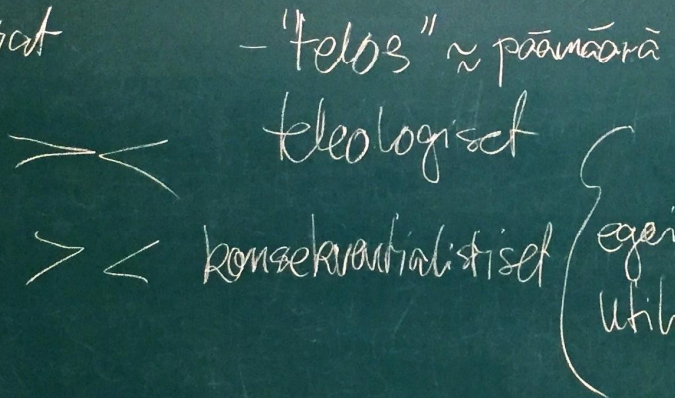 - "telos" ≈ päämäärä
teleologiset
>< 
> < konsekventialistiset